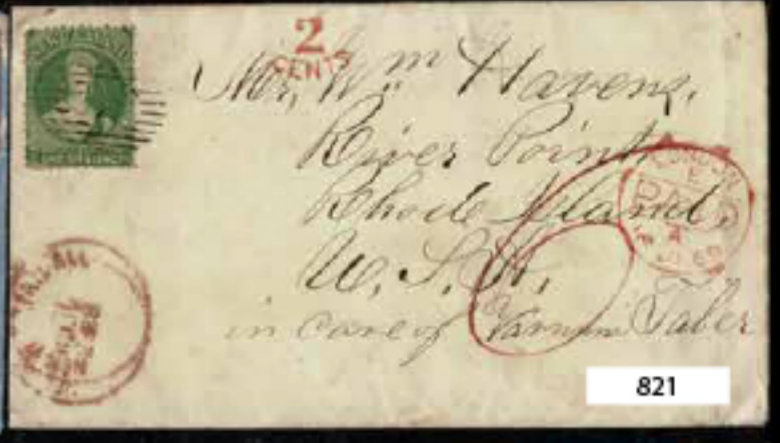 2
CENTS
Mr, Wm Havens,
River Point
Rhode Island,
U. S. A.
in care of Varnum Taber
LONDON
PAID
821